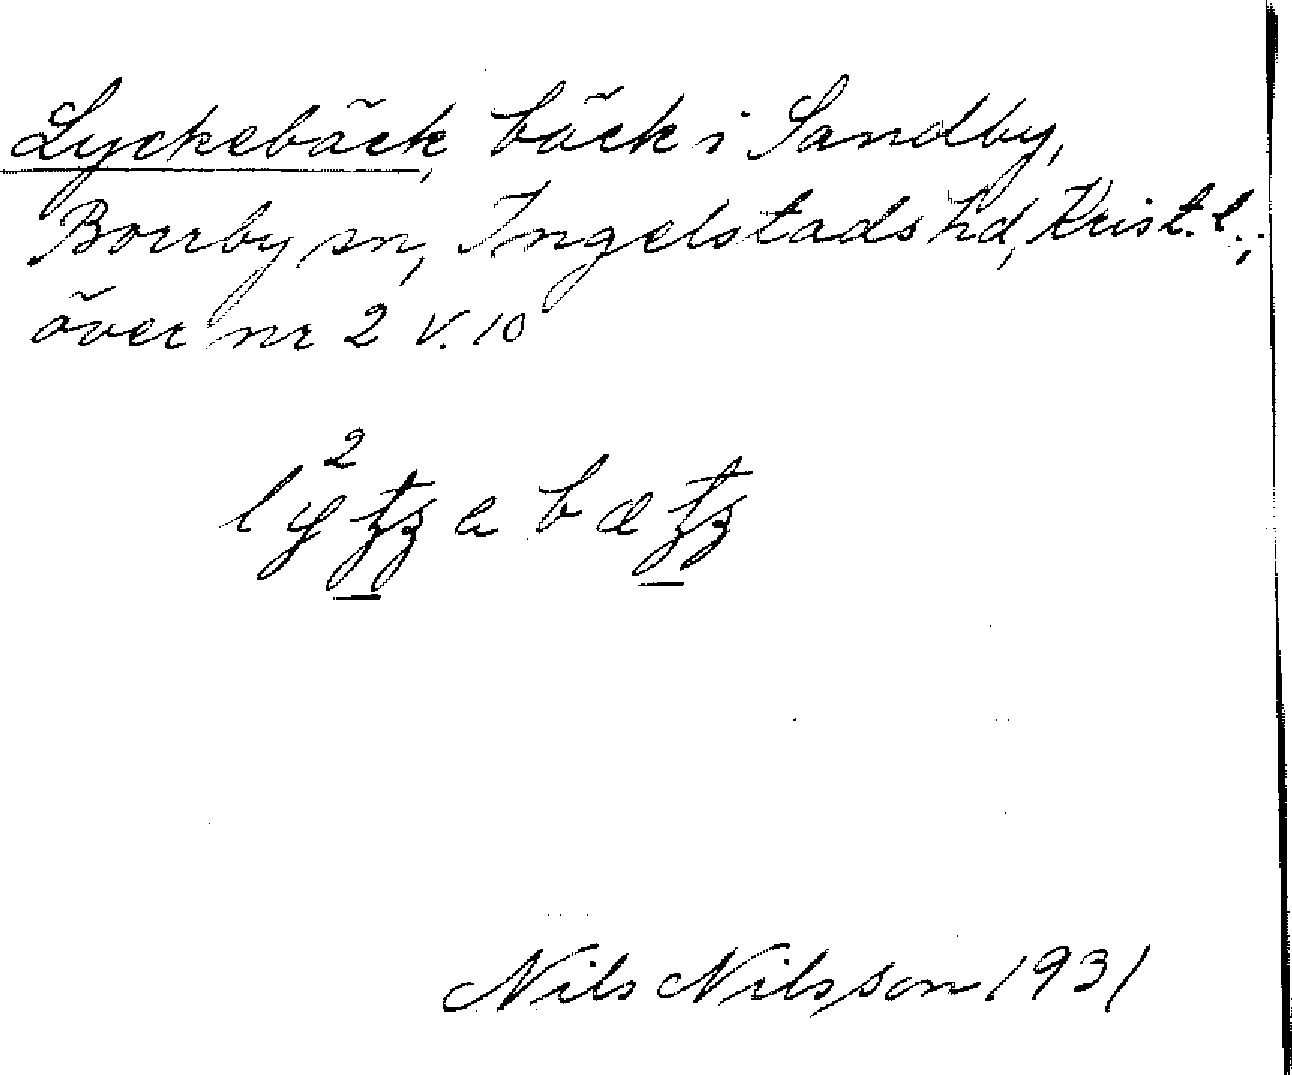 Lyckebäck, bäck i Sandby,
Borrby sn, Ingelstads hd, Krist. l.;
över nr 2 V. 10
Nils Nilsson 1931